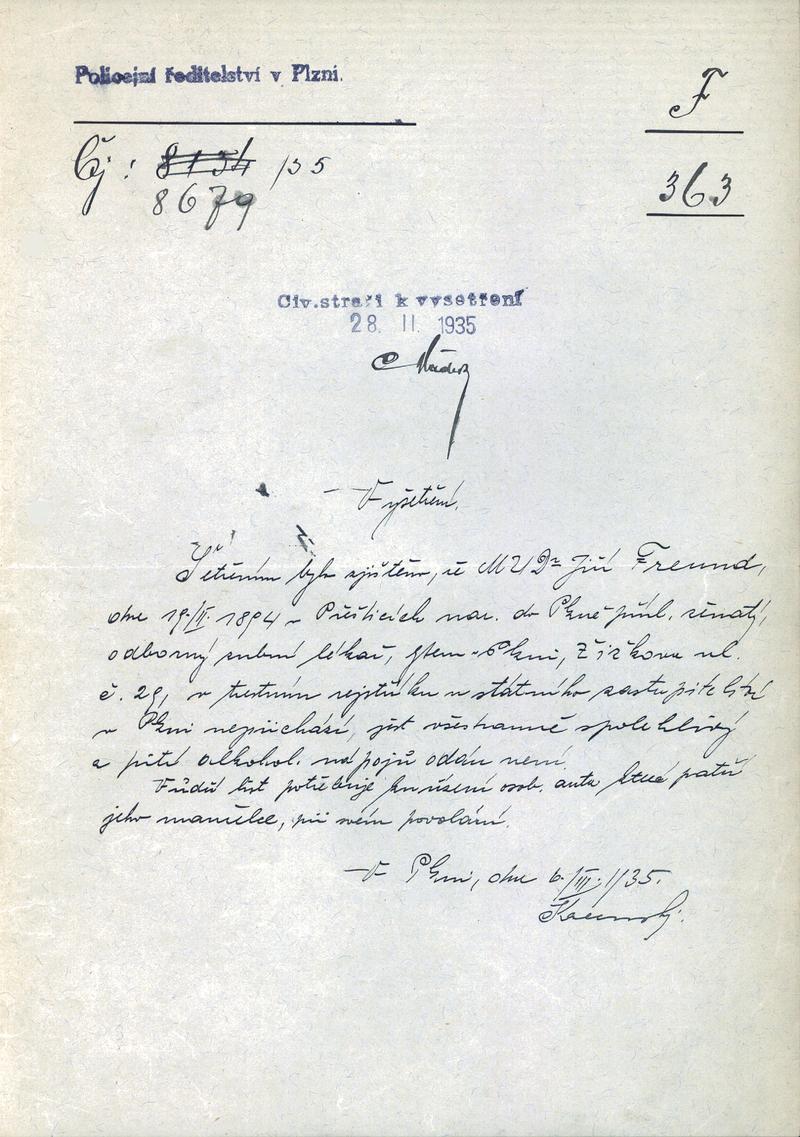 Policejní ředitelství v Plzni.
F
Čj: 8134 /35
8679
363
Civ.straži k vyšetření
28. II. 1935
Vyšetření.
Šetřením bylo zjištěno, že MUDr Jiří Freund,
dne 19/II. 1894 v Přešticích nar. do Plzně přísl. ženatý,
odborný zubní lékař, bytem v Plzni, Žižkova ul.
č. 29, v trestním rejstříku u státního zastupitelství
v Plzni nepřichází, jest všestranně spolehlivý
a pití alkohol. nápojů oddán není.
Vůdčí list potřebuje ku řízení osob. auta které patří
jeho manželce, při svém povolání.
V Plzni, dne 6./III. 1/35.